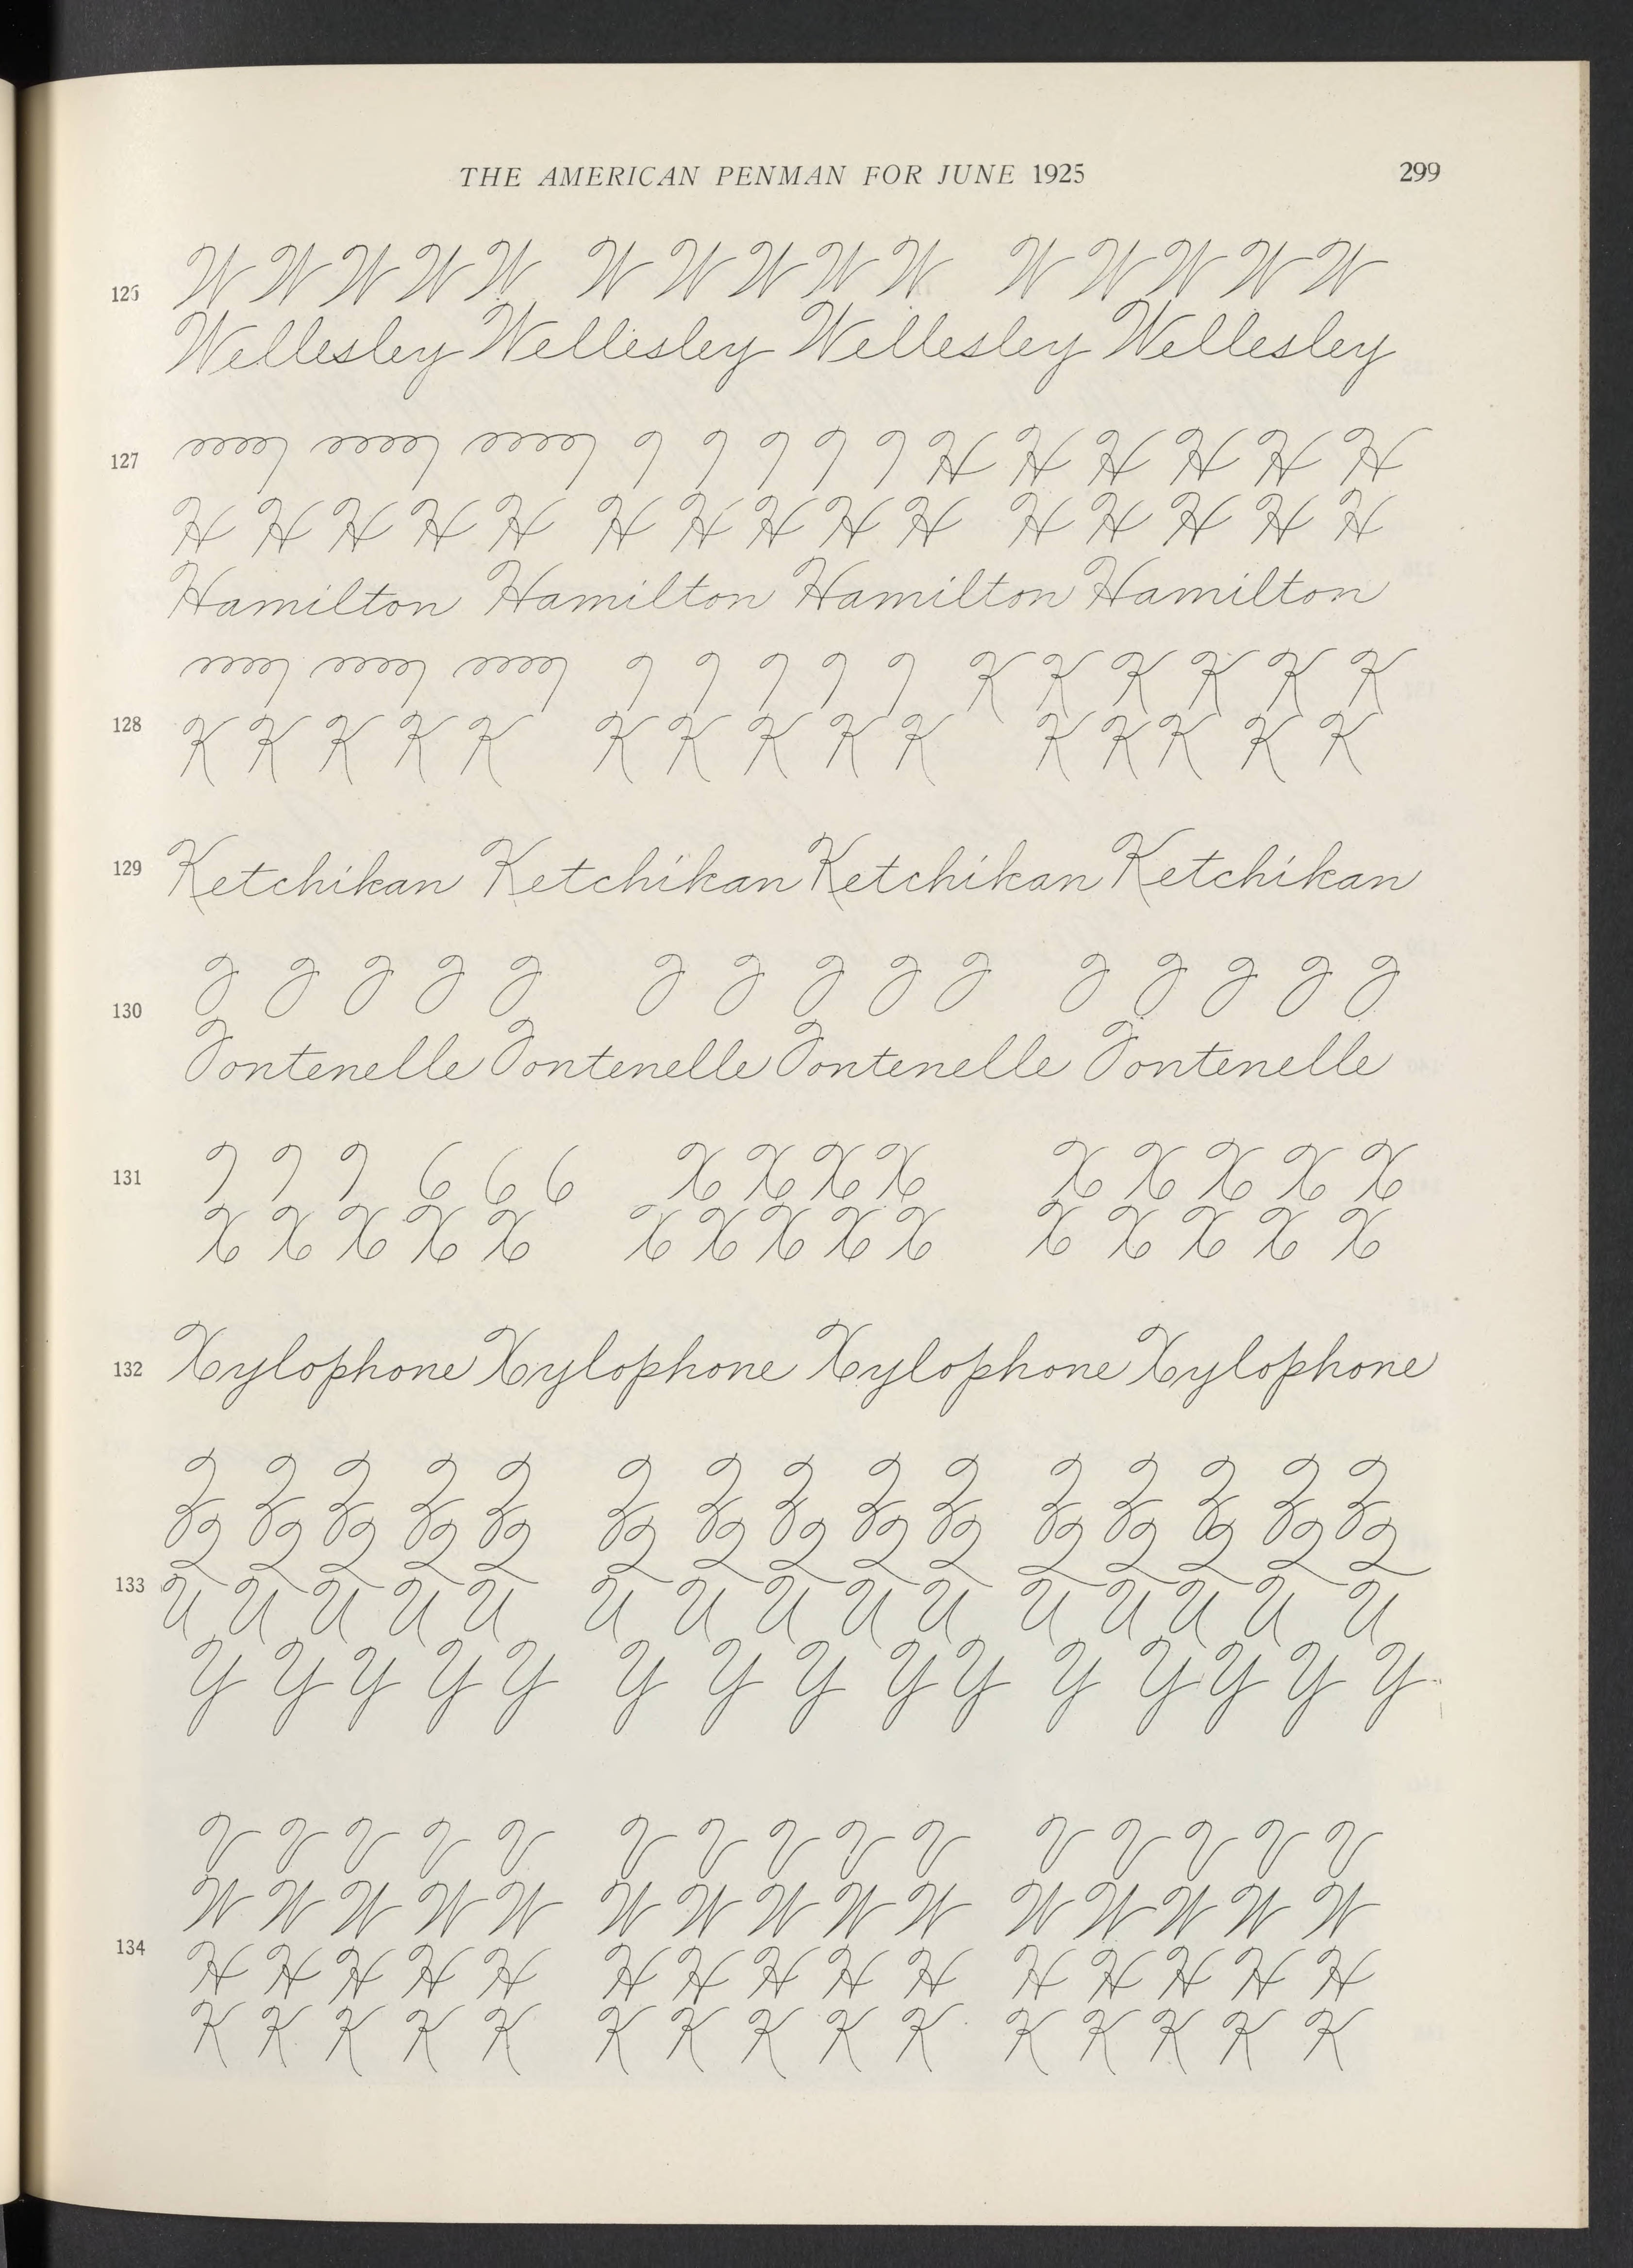 THE AMERICAN PENMAN FOR JUNE 1925 299
126 W W W W W W W W W W W W W W W
Wellesley Wellesley Wellesley Wellesley
127 H H H H H H
H H H H H H H H H H H H H H H
Hamilton Hamilton Hamilton Hamilton
K K K K K K
128 K K K K K K K K K K K K K K K
129 Ketchikan Ketchikan Ketchikan Ketchikan
130 F F F F F F F F F F F F F F F
Fontenelle Fontenelle Fontenelle Fontenelle
131 X X X X X X X X X
X X X X X X X X X X X X X X X
132 Xylophone Xylophone Xylophone Xylophone
Z Z Z Z Z Z Z Z Z Z Z Z Z Z Z
Q Q Q Q Q Q Q Q Q Q Q Q Q Q Q
133 U U U U U U U U U U U U U U U
Y Y Y Y Y Y Y Y Y Y Y Y Y Y Y
V V V V V V V V V V V V V V V
W W W W W W W W W W W W W W W
134 H H H H H H H H H H H H H H H
K K K K K K K K K K K K K K K